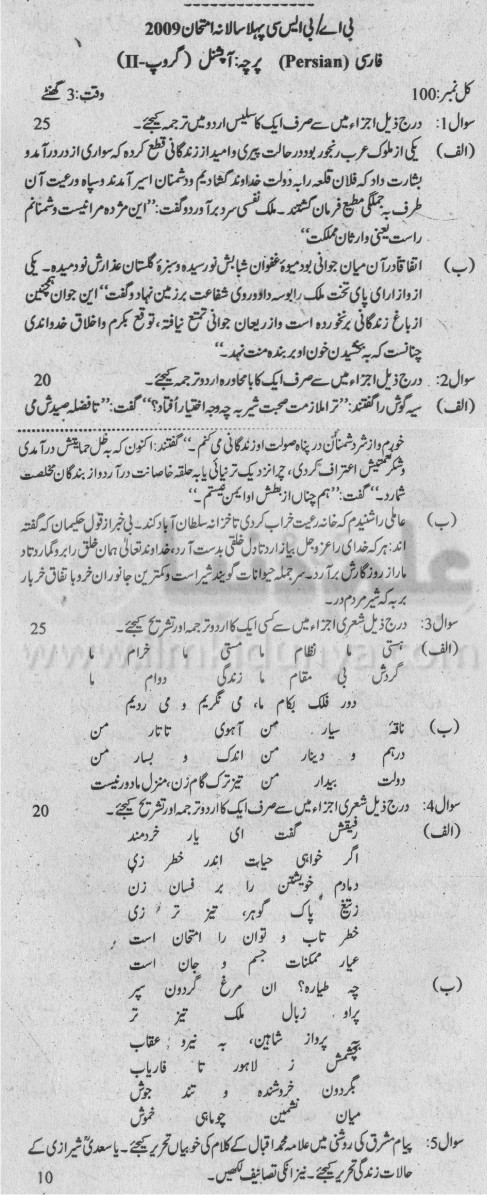 بی اے/بی ایس سی پہلا سالانہ امتحان 2009
فارسی (Persian) پرچہ: آپشنل (گروپ-II)
کل نمبر: 100 وقت: 3 گھنٹے
سوال 1: درج ذیل اجزاء میں سے صرف ایک کا سلیس اردو میں ترجمہ کیجئے۔ 25
(الف) یکی از ملوک عرب رنجور بود در حالت پیری و امید از زندگانی قطع کردہ کہ سواری از در درآمد و
بشارت داد کہ فلان قلعہ را بہ دولت خداوند گشادیم و دشمنان اسیر آمدند و سپاہ و رعیت آن
طرف بہ جملگی مطیع فرمان گشتند۔ ملک نفسی سرد برآورد و گفت: "این مژدہ مرا نیست و دشمنانم
راست یعنی وارثان مملکت"
(ب) اتفاقا در آن میان جوانی بود میوۂ عنفوان شبابش نو رسیدہ و سبزۂ گلستان عذارش نو دمیدہ۔ یکی
از وزارای پای تخت ملک را بوسہ داد و روی شفاعت بر زمین نہاد و گفت "این جوان ہمچنین
از باغ زندگانی برنخوردہ است و از ریعان جوانی تمتع نیافتہ، توقع بکرم و اخلاق خداوندی
چنانست کہ بہ بخشیدن خون او بر بندہ منت نہد۔"
سوال 2: درج ذیل اجزاء میں سے صرف ایک کا بامحاورہ اردو ترجمہ کیجئے۔ 20
(الف) سیہ گوش را گفتند: "ترا ملازمت صحبت شیر بہ چہ وجہ اختیار افتاد؟" گفت: "تا فضلہ صیدش می
خورم و از شر دشمنان در پناہ صولت او زندگانی می کنم۔" گفتند: اکنون کہ بہ ظل حمایتش درآمدی
و شکر نعمتش اعتراف کردی، چرا نزدیک تر نیائی تا بہ حلقہ خاصانت درآرد و از بندگان مخلصت
شمارد۔" گفت: "ہم چناں از بطش او ایمن نیستم۔"
(ب) عاملی را شنیدم کہ خانہ رعیت خراب کردی تا خزانہ سلطان آباد کند۔ بی خبر از قول حکیمان کہ گفتہ
اند: ہر کہ خدای را عز و جل بیازارد تا دل خلقی بدست آرد، خداوند تعالی ہمان خلق را بروگمارد تا د
مار از روزگارش برآرد۔ سر جملہ حیوانات گویند شیر است و کمترین جانوران خر و باتفاق خر بار
بر بہ کہ شیر مردم در۔
سوال 3: درج ذیل شعری اجزاء میں سے کسی ایک کا اردو ترجمہ اور تشریح کیجئے۔ 25
(الف) ہستی ما نظام ما مستی ما خرام ما
گردش بی مقام ما زندگی دوام ما
دور فلک بکام ما، می نگریم و می رویم
(ب) ناقۂ سیار من آہوی تاتار من
درہم و دینار من اندک و بسار من
دولت بیدار من تیز ترک گام زن، منزل ما دور نیست
سوال 4: درج ذیل شعری اجزاء میں سے صرف ایک کا اردو ترجمہ اور تشریح کیجئے۔ 20
(الف) رفیقش گفت ای یار خردمند
اگر خواہی حیات اندر خطر زی
دمادم خویشتن را بر فسان زن
زتیغ پاک گوہر، تیز تر زی
خطر تاب و توان را امتحان است
عیار ممکنات جسم و جان است
(ب) چہ طیارہ؟ ان مرغ گردون سپر
پراو زبال ملک تیز تر
بہ پرواز شاہین، بہ نیرو عقاب
بچشمش ز لاہور تا فاریاب
بگردون خروشندہ و تند جوش
میان نشیمن چوماہی خموش
سوال 5: پیام مشرق کی روشنی میں علامہ محمد اقبال کے کلام کی خوبیاں تحریر کیجئے۔ یا سعدیؒ شیرازی کے
حالات زندگی تحریر کیجئے۔ نیز انکی تصانیف لکھیں۔ 10
www.ilmkidunya.com